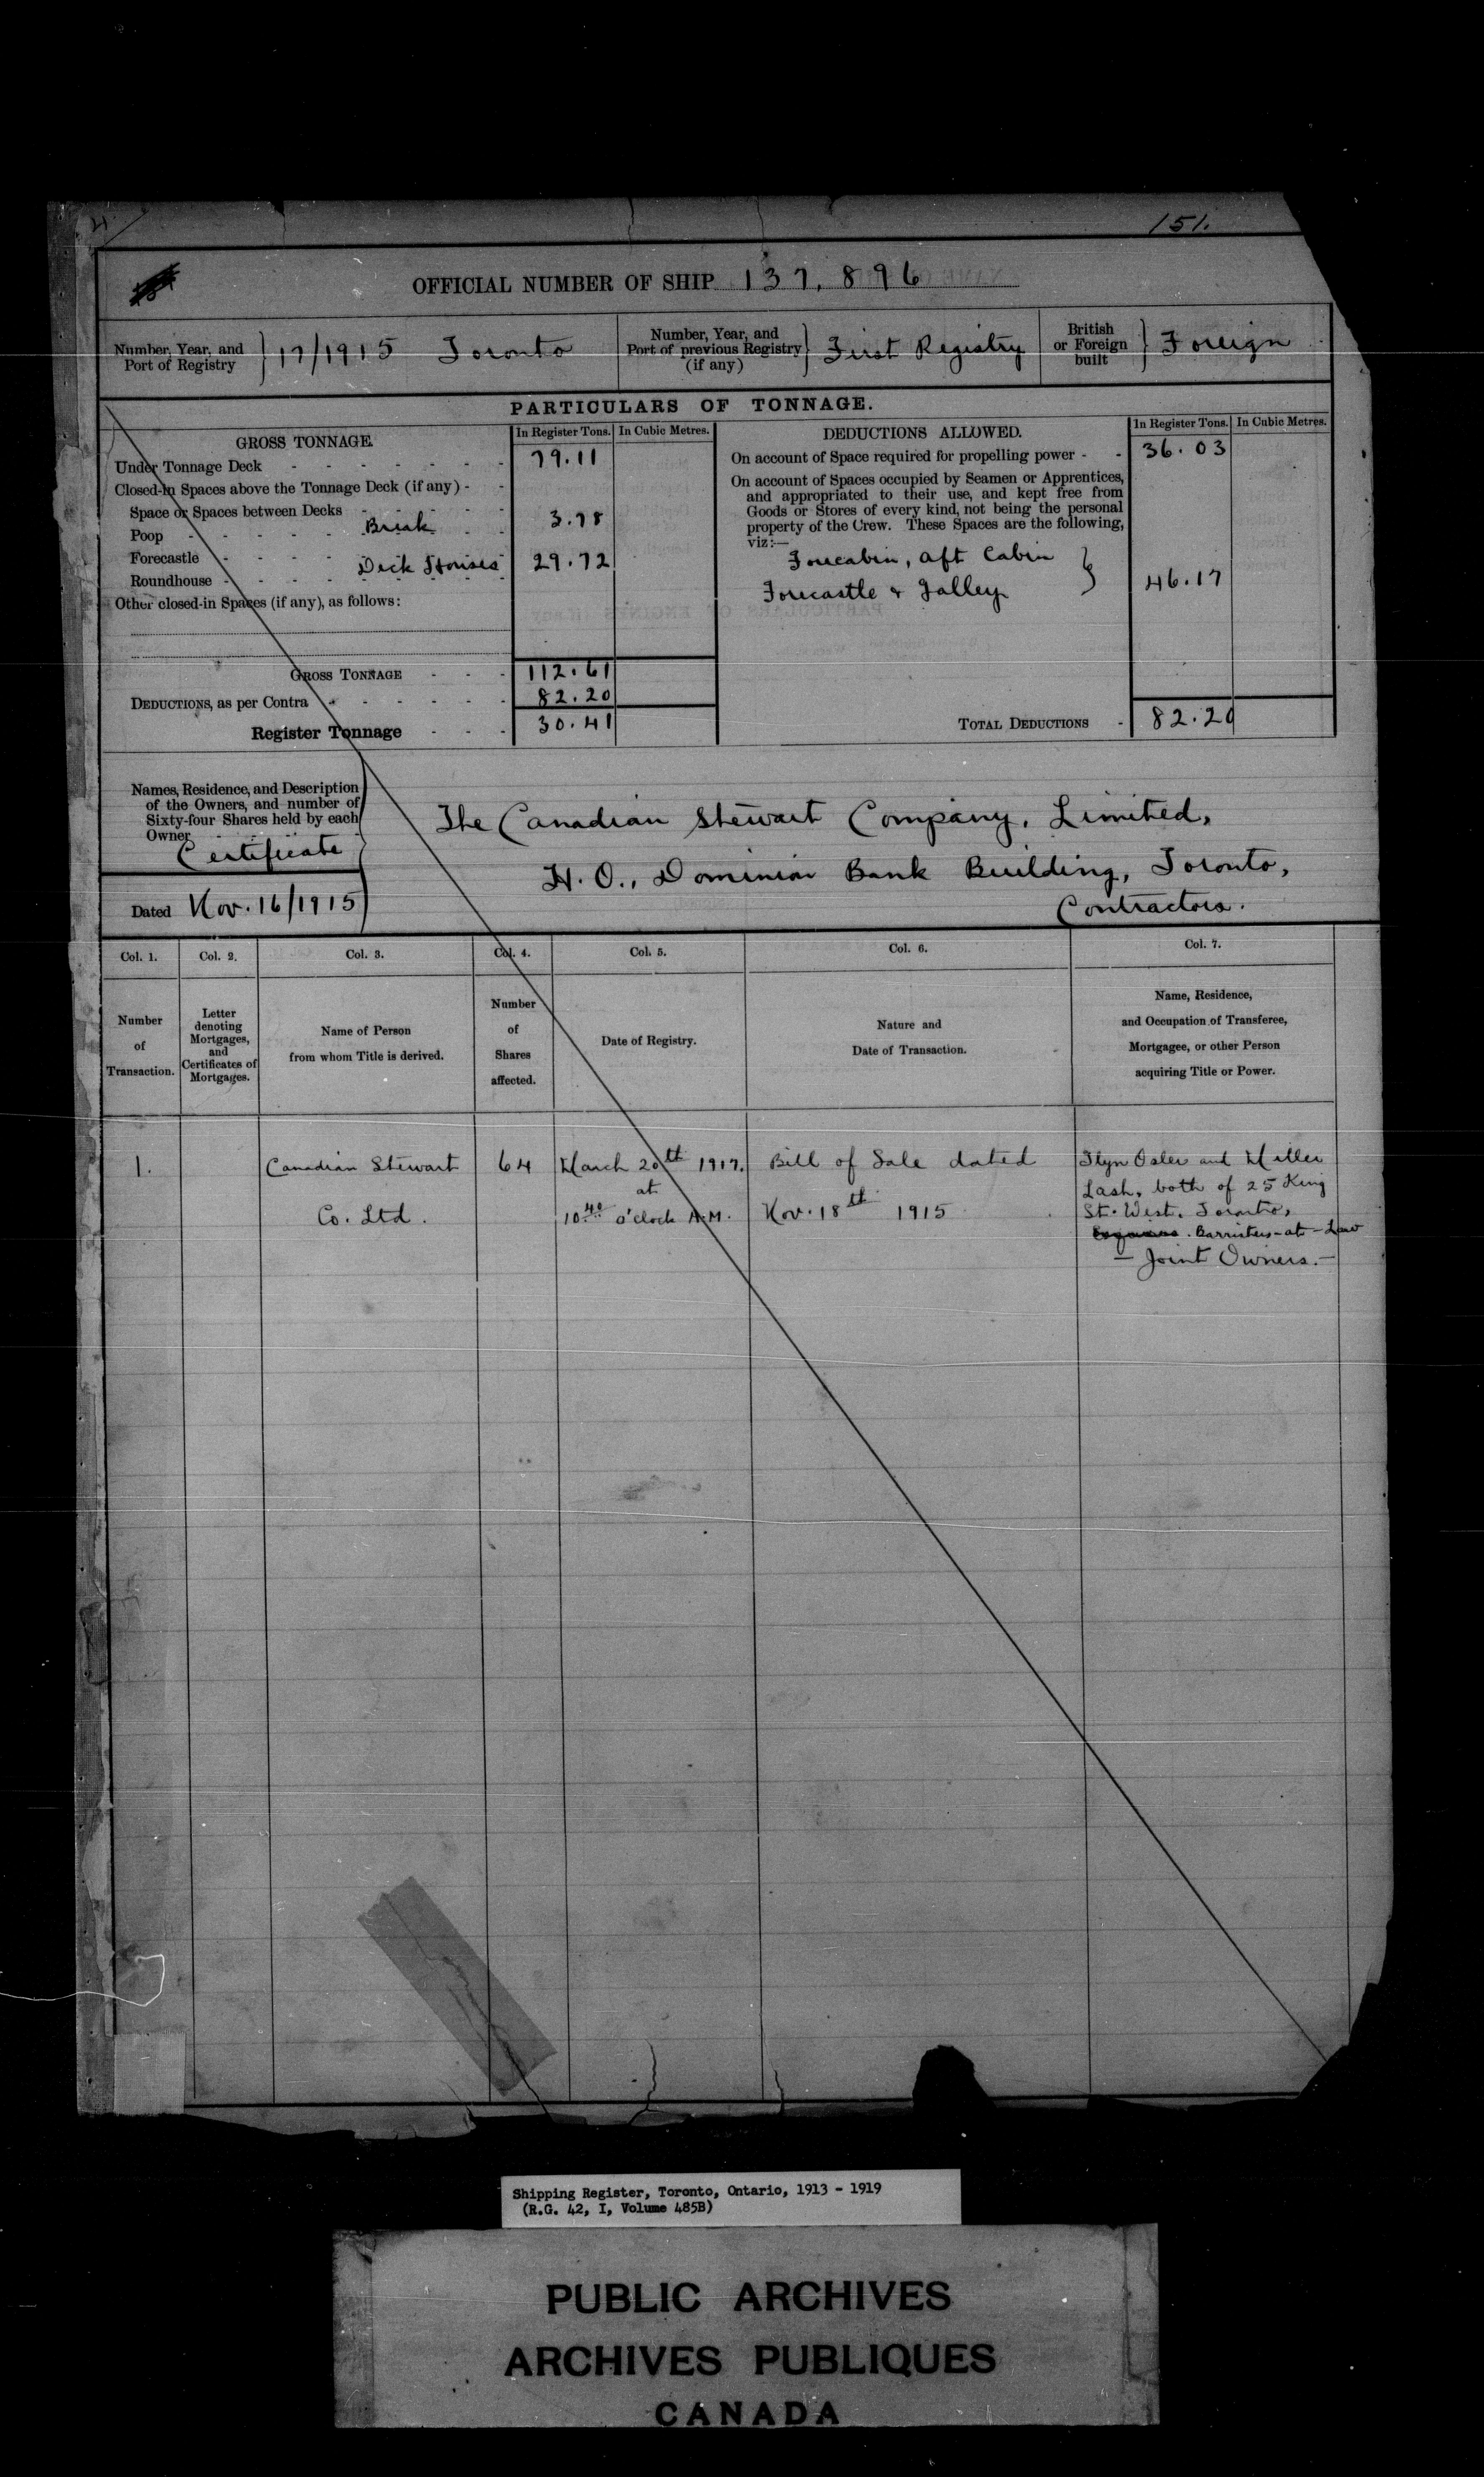 151.
OFFICIAL NUMBER OF SHIP 137,896
Number, Year, and Port of Registry 17/1915 Toronto
Number, Year, and Port of previous Registry (if any) First Registry
British or Foreign built Foreign
PARTICULARS OF TONNAGE.
GROSS TONNAGE. In Register Tons. In Cubic Metres.
Under Tonnage Deck 79.11
Closed-in Spaces above the Tonnage Deck (if any)
Space or Spaces between Decks
Poop Break 3.78
Forecastle
Roundhouse Deck Houses 29.72
Other closed-in Spaces (if any), as follows:
GROSS TONNAGE 112.61
DEDUCTIONS, as per Contra 82.20
Register Tonnage 30.41
DEDUCTIONS ALLOWED. In Register Tons. In Cubic Metres.
On account of Space required for propelling power - - 36.03
On account of Spaces occupied by Seamen or Apprentices,
and appropriated to their use, and kept free from
Goods or Stores of every kind, not being the personal
property of the Crew. These Spaces are the following,
viz:—
Forecabin, aft Cabin
Forecastle & Galley 46.17
TOTAL DEDUCTIONS - 82.20
Names, Residence, and Description
of the Owners, and number of
Sixty-four Shares held by each
Owner
Certificate
Dated Nov. 16/1915
The Canadian Stewart Company, Limited,
H.O., Dominion Bank Building, Toronto,
Contractors.
Col. 1. Col. 2. Col. 3. Col. 4. Col. 5. Col. 6. Col. 7.
Number of Transaction.
Letter denoting Mortgages, and Certificates of Mortgages.
Name of Person from whom Title is derived.
Number of Shares affected.
Date of Registry.
Nature and Date of Transaction.
Name, Residence, and Occupation of Transferee, Mortgagee, or other Person acquiring Title or Power.
1.
Canadian Stewart
Co. Ltd.
64
March 20th 1917.
at
10.40 o'clock A.M.
Bill of Sale dated
Nov. 18th 1915
Glyn Osler and Miller
Lash, both of 25 King
St. West, Toronto,
Barristers-at-Law
— Joint Owners. —
Shipping Register, Toronto, Ontario, 1913 - 1919
(R.G. 42, I, Volume 485B)
PUBLIC ARCHIVES
ARCHIVES PUBLIQUES
CANADA